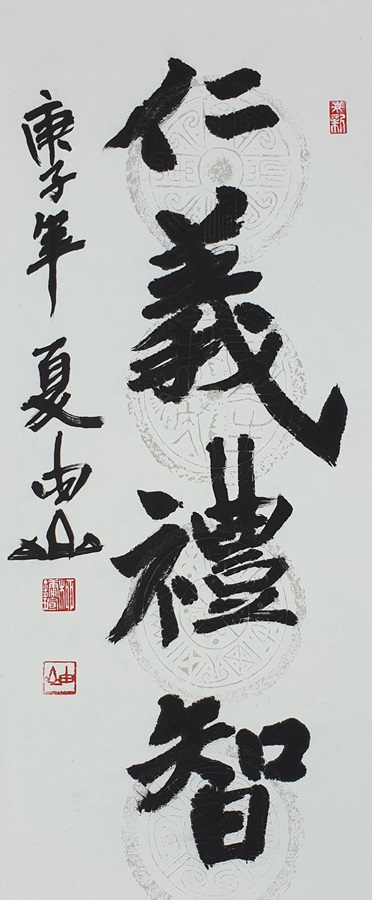 仁義禮智
庚子年夏由山
由山